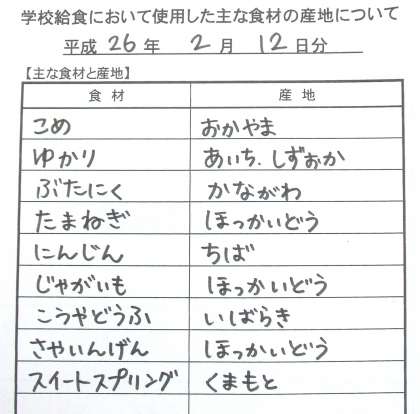 学校給食において使用した主な食材の産地について
平成 26 年 2 月 12 日分
【主な食材と産地】
食 材 産 地
こめ おかやま
ゆかり あいち、しずおか
ぶたにく かながわ
たまねぎ ほっかいどう
にんじん ちば
じゃがいも ほっかいどう
こうやどうふ いばらき
さやいんげん ほっかいどう
スイートスプリング くまもと